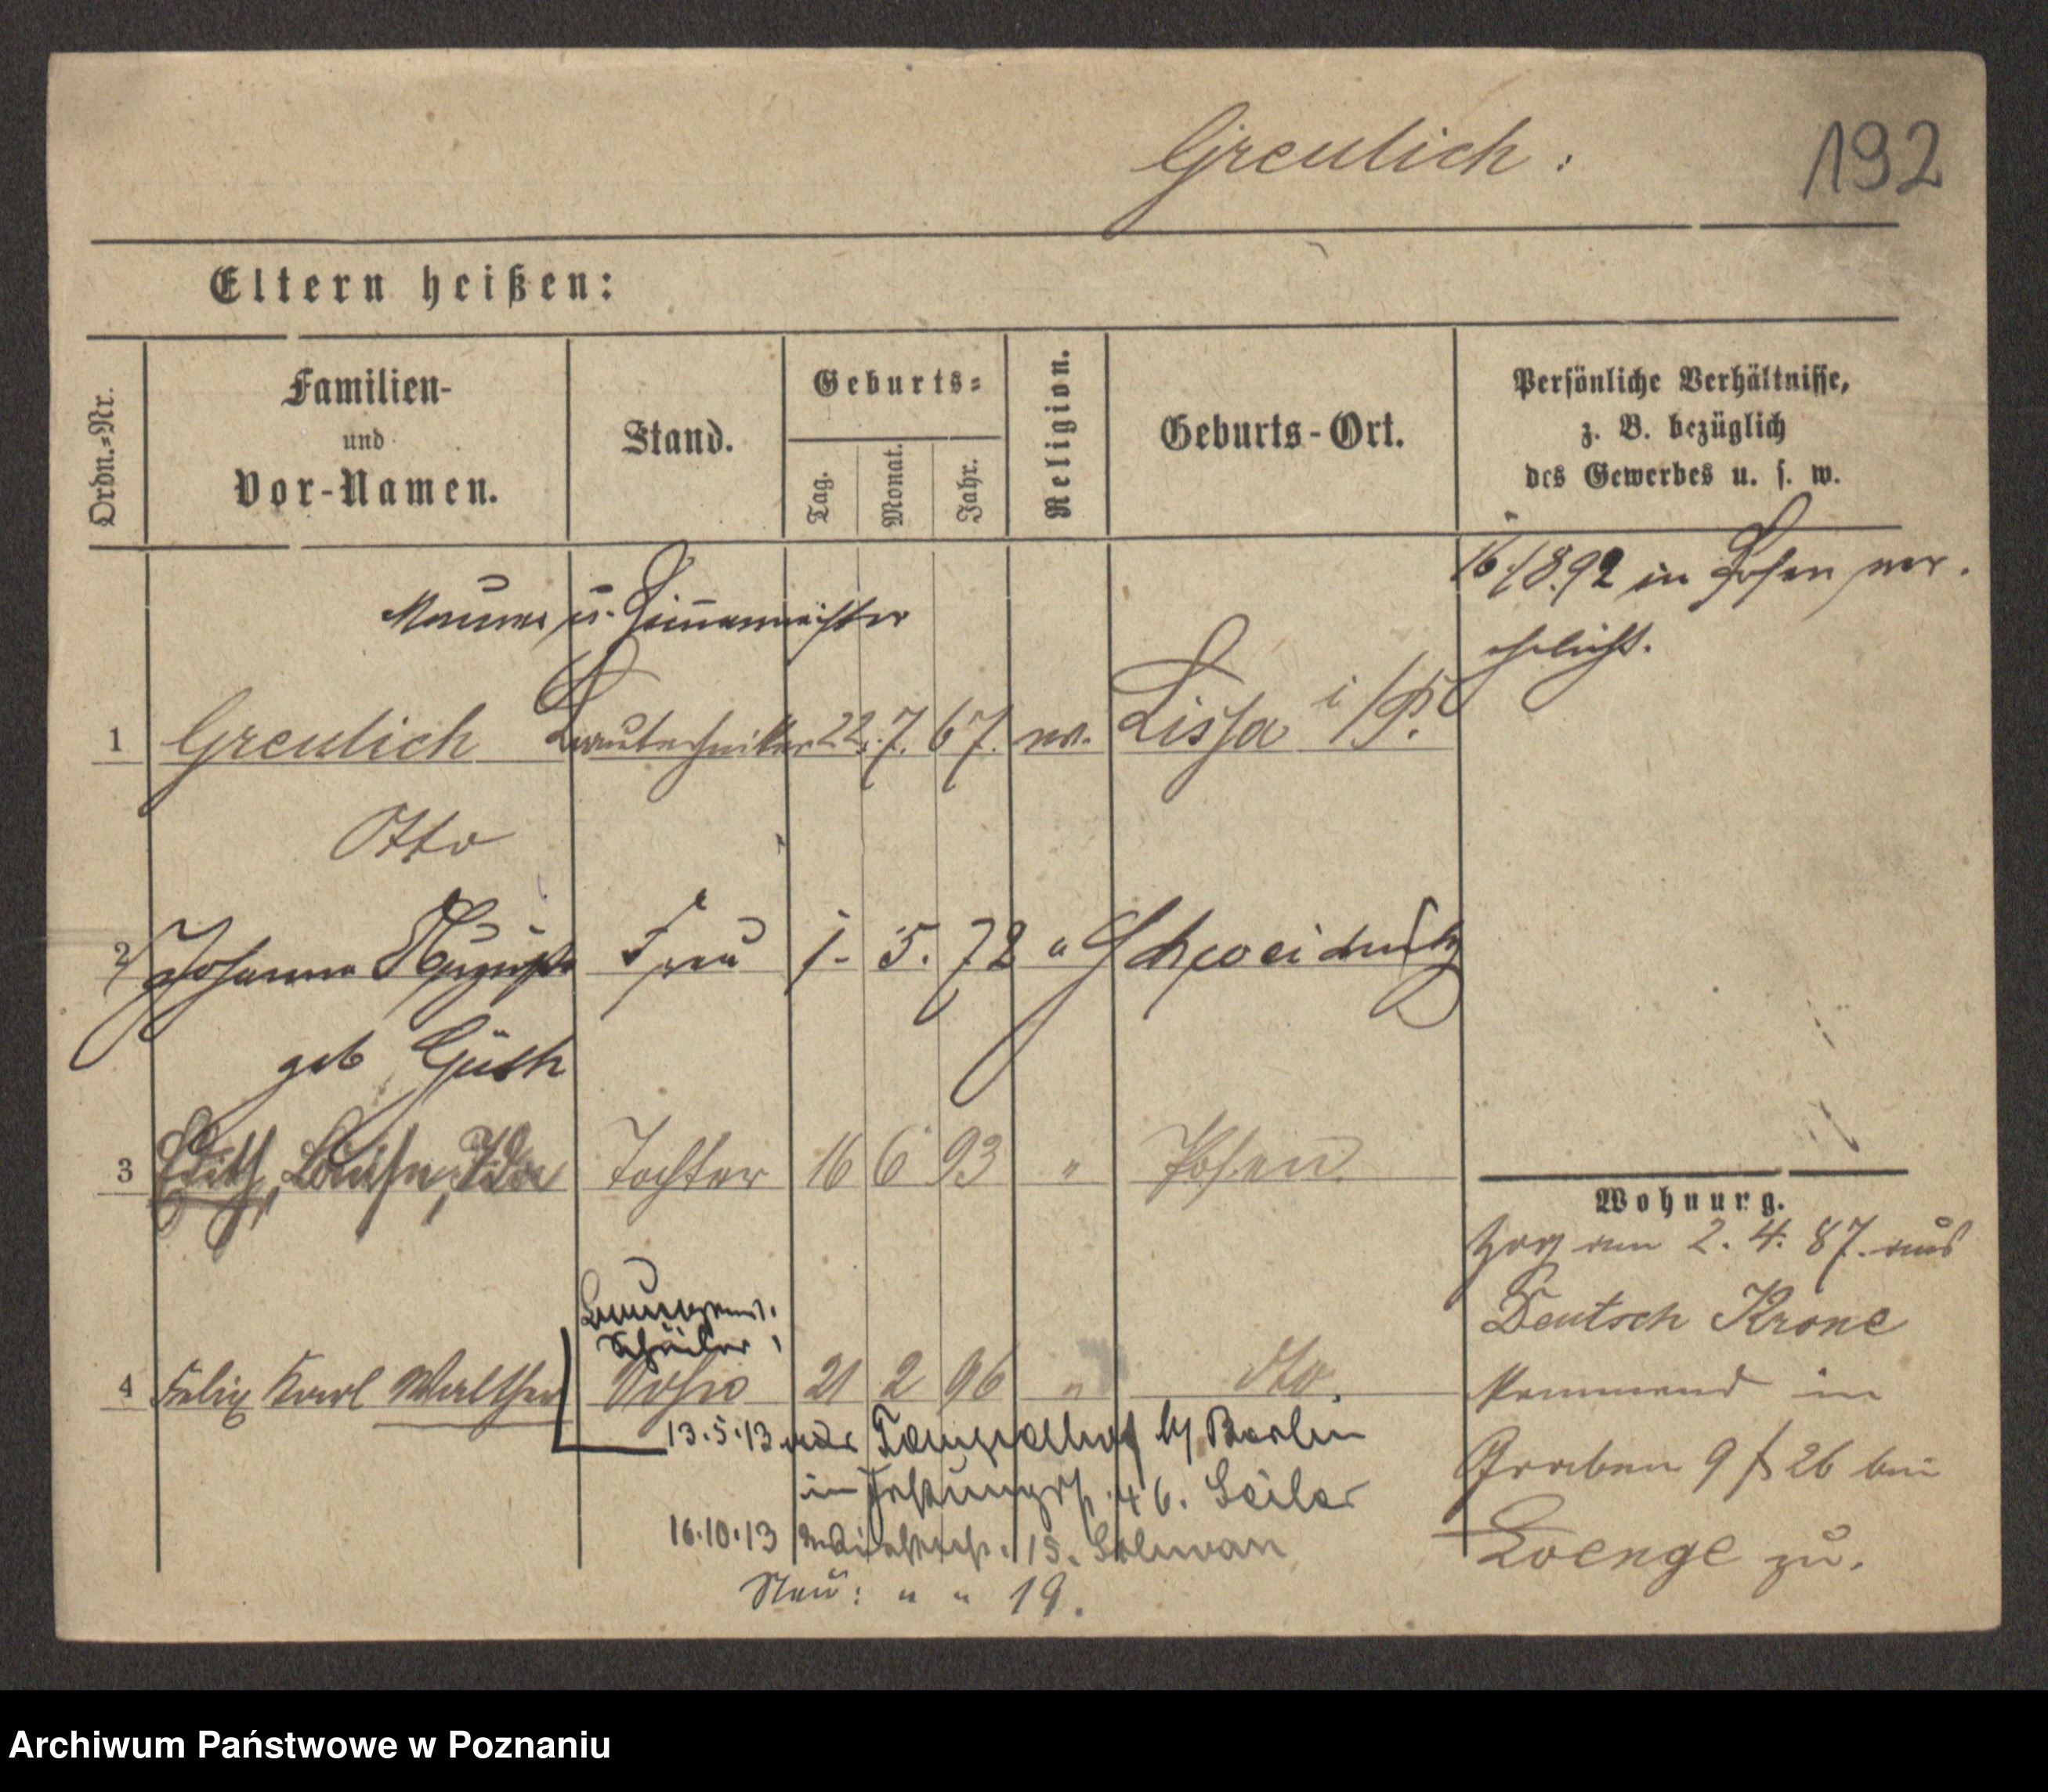 Greulich:
192
Eltern heißen:
Ordn.=Nr.
Familien-
und
Vor-Namen.
Stand.
Geburts=
Tag.
Monat.
Jahr.
Religion.
Geburts-Ort.
Persönliche Verhältnisse,
z. B. bezüglich
des Gewerbes u. s. w.
16/8.92 in Posen ver.
ehelicht.
Maurer u. Zimmermeister
1 Greulich Bautechniker 22. 7. 67. ev. Lissa i/P.
Otto
2 Johanna Auguste Frau 1. 5. 72 " Schweidnitz
geb Güth
3 Edith, Louise, Ida Tochter 16 6 93 " Posen
Wohnung.
Zog am 2. 4. 87. aus
Deutsch Krone
kommend in
Graben 9 26 bei
Loenge zu.
Baugew.
Schüler
4 Felix Karl Walther Sohn 21 2 96 " dto.
13.5.13 Tempelhof b/ Berlin
46. Seiler
16.10.13 15.
Neu: " " 19.
Archiwum Państwowe w Poznaniu